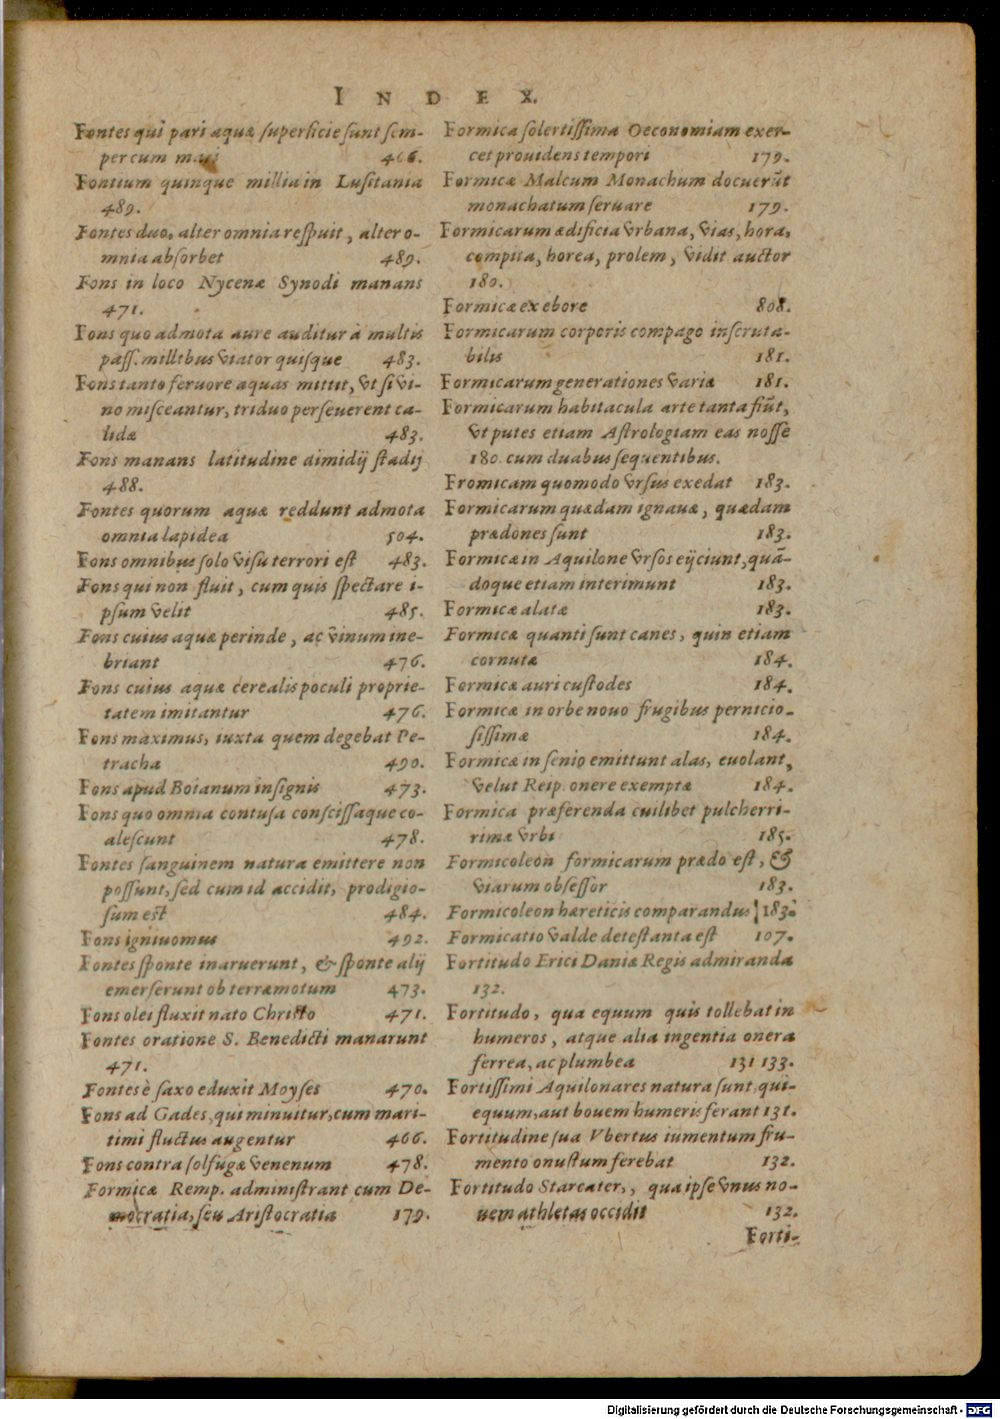 INDEX.
Fontes qui pari aquæ superficie sunt sem-
per cum mari 466.
Fontium quinque millia in Lusitania
489.
Fontes duo, alter omnia respuit, alter o-
mnia absorbet 489.
Fons in loco Nycenæ Synodi manans
471.
Fons quo admota aure auditur à multis
pass. millibus viator quisque 483.
Fons tanto feruore aquas mittit, vt si vi-
no misceantur, triduo perseuerent ca-
lidæ 483.
Fons manans latitudine dimidij stadij
488.
Fontes quorum aquæ reddunt admota
omnia lapidea 504.
Fons omnibus solo visu terrori est 483.
Fons qui non fluit, cum quis spectare i-
psum velit 485.
Fons cuius aquæ perinde, ac vinum ine-
briant 476.
Fons cuius aquæ cerealis poculi proprie-
tatem imitantur 476.
Fons maximus, iuxta quem degebat Pe-
tracha 490.
Fons apud Boianum insignis 473.
Fons quo omnia contusa conscissaque co-
alescunt 478.
Fontes sanguinem natura emittere non
possunt, sed cum id accidit, prodigio-
sum est 484.
Fons igniuomus 492.
Fontes sponte inaruerunt, & sponte alij
emerserunt ob terræmotum 473.
Fons olei fluxit nato Christo 471.
Fontes oratione S. Benedicti manarunt
471.
Fontes è saxo eduxit Moyses 470.
Fons ad Gades, qui minuitur, cum mari-
timi fluctus augentur 466.
Fons contra solfugæ venenum 478.
Formicæ Remp. administrant cum De-
mocratia, seu Aristocratia 179.
Formica solertissima Oeconomiam exer-
cet prouidens tempori 179.
Formicæ Malcum Monachum docuerūt
monachatum seruare 179.
Formicarum ædificia vrbana, vias, hora,
compita, horea, prolem, vidit auctor
180.
Formicæ ex ebore 808.
Formicarum corporis compago inscruta-
bilis 181.
Formicarum generationes variæ 181.
Formicarum habitacula arte tanta fiūt,
vt putes etiam Astrologiam eas nosse
180. cum duabus sequentibus.
Fromicam quomodo vrsus exedat 183.
Formicarum quædam ignauæ, quædam
prædones sunt 183.
Formicæ in Aquilone vrsos eijciunt, quā-
doque etiam interimunt 183.
Formicæ alatæ 183.
Formicæ quanti sunt canes, quin etiam
cornutæ 184.
Formicæ auri custodes 184.
Formicæ in orbe nouo frugibus pernicio-
sissimæ 184.
Formicæ in senio emittunt alas, euolant,
velut Reip. onere exemptæ 184.
Formica præferenda cuilibet pulcherri-
rimæ vrbi 185.
Formicoleon formicarum prædo est, &
viarum obsessor 183.
Formicoleon hæreticis comparandus 183.
Formicatio valde detestanta est 107.
Fortitudo Erici Daniæ Regis admiranda
132.
Fortitudo, qua equum quis tollebat in
humeros, atque alia ingentia onera
ferrea, ac plumbea 131 133.
Fortissimi Aquilonares natura sunt, qui-
equum, aut bouem humeris ferant 131.
Fortitudine sua Vbertus iumentum fru-
mento onustum ferebat 132.
Fortitudo Starcater,, qua ipse vnus no-
uem athletas occidit 132.
Forti-
Digitalisierung gefördert durch die Deutsche Forschungsgemeinschaft - DFG